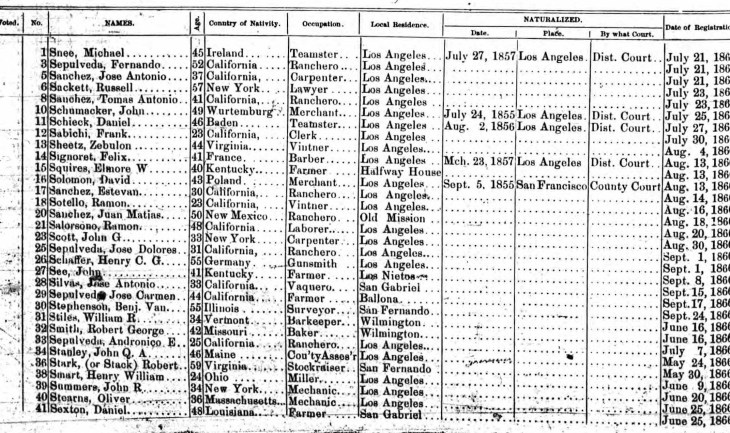 Voted. No. NAMES. Age. Country of Nativity. Occupation. Local Residence. NATURALIZED. Date. Place. By what Court. Date of Registratio
1 Snee, Michael 45 Ireland Teamster Los Angeles July 27, 1857 Los Angeles Dist. Court July 21, 186
3 Sepulveda, Fernando 52 California Ranchero Los Angeles July 21, 186
5 Sanchez, Jose Antonio 37 California Carpenter Los Angeles July 21, 186
6 Sackett, Russell 57 New York Lawyer Los Angeles July 23, 186
8 Sanchez, Tomas Antonio 41 California, Ranchero Los Angeles July 23, 186
10 Schumacker, John 49 Wurtemburg Merchant Los Angeles July 24, 1855 Los Angeles Dist. Court July 25, 186
11 Schieck, Daniel 46 Baden Teamster Los Angeles Aug. 2, 1856 Los Angeles Dist. Court July 27, 186
12 Sabichi, Frank 23 California, Clerk Los Angeles July 30, 186
13 Sheetz, Zebulon 44 Virginia Vintner Los Angeles Aug. 4, 186
14 Signoret, Felix 41 France Barber Los Angeles Mch. 23, 1857 Los Angeles Dist. Court Aug. 13, 186
15 Squires, Elmore W 40 Kentucky Farmer Halfway House Aug. 13, 186
16 Solomon, David 43 Poland Merchant Los Angeles Sept. 5, 1855 San Francisco County Court Aug. 13, 186
17 Sanchez, Estevan 30 California Ranchero Los Angeles Aug. 14, 186
18 Sotello, Ramon 23 California, Vintner Los Angeles Aug. 16, 186
20 Sanchez, Juan Matias 50 New Mexico Ranchero Old Mission Aug. 18, 186
21 Salorsono, Ramon 48 California Laborer Los Angeles Aug. 20, 186
23 Scott, John G 33 New York Carpenter Los Angeles Aug. 30, 186
25 Sepulveda, Jose Dolores 31 California, Ranchero Los Angeles Sept. 1, 186
26 Schaffer, Henry C. G. 55 Germany Gunsmith Los Angeles Sept. 1, 186
27 See, John 41 Kentucky Farmer Los Nietos Sept. 8, 186
28 Silvas, Jose Antonio 33 California Vaquero San Gabriel Sept. 15, 186
29 Sepulveda Jose Carmen 44 California Farmer Ballona Sept. 17, 186
30 Stephenson, Benj. Van 55 Illinois Surveyor San Fernando Sept. 24, 186
31 Stiles, William R 34 Vermont Barkeeper Wilmington June 16, 186
32 Smith, Robert George 42 Missouri Baker Wilmington June 16, 186
33 Sepulveda, Andronico E 25 California Ranchero Los Angeles July 7, 186
34 Stanley, John Q. A 46 Maine Cou'ty Asses'r Los Angeles May 24, 186
36 Stark, (or Stack) Robert 59 Virginia Stockraiser San Fernando May 30, 186
38 Smart, Henry William 24 Ohio Miller Los Angeles June 9, 186
39 Summers, John R 34 New York Mechanic Los Angeles June 20, 186
40 Stearns, Oliver 36 Massachusetts Mechanic Los Angeles June 25, 186
41 Sexton, Daniel 48 Louisiana Farmer San Gabriel June 25, 186